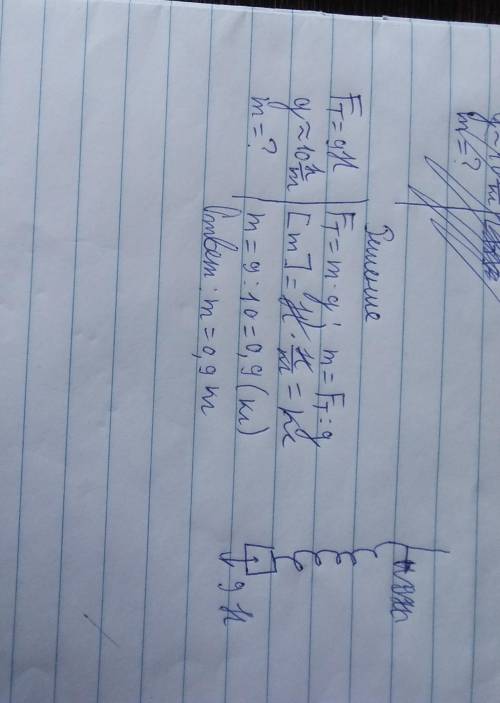 g ≈ 10 m
m = ?
Решение
Fт = 9Н
g ≈ 10 Н/m
m = ?
Fт = m · g ; m = Fт : g
[m] = Н : Н/кг = кг
m = 9 : 10 = 0,9 (кг)
Ответ : m = 0,9 кг
9 Н